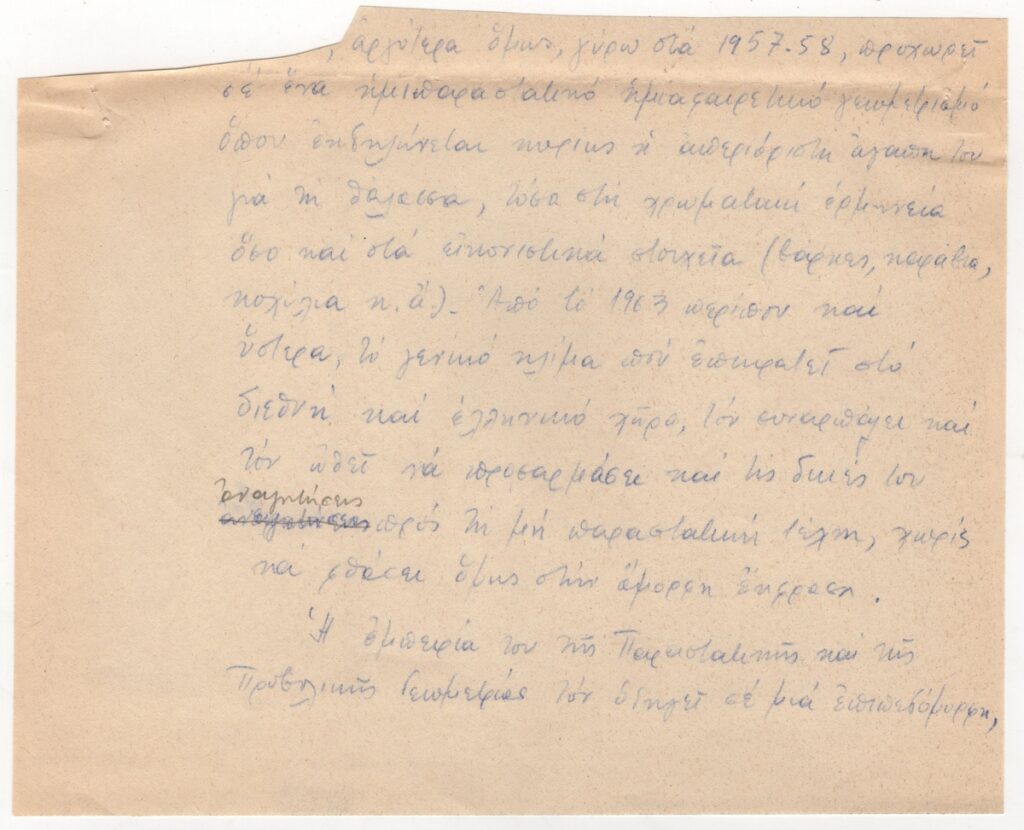 , ἀργότερα ὅμως, γύρω στά 1957-58, προχωρεῖ
σέ ἕνα ἡμιπαραστατικό ἡμιαφαιρετικό γεωμετρισμό
ὅπου ἐκδηλώνεται κυρίως ἡ ἀπεριόριστη ἀγάπη του
γιά τή θάλασσα, τόσο στή χρωματική ἑρμηνεία
ὅσο καί στά εἰκονιστικά στοιχεῖα (βάρκες, καράβια,
κοχύλια κ.ἄ.). Ἀπό τό 1963 περίπου καί
ὕστερα, τό γενικό κλίμα πού ἐπικρατεῖ στό
διεθνῆ καί ἑλληνικό χῶρο, τόν συναρπάζει καί
τόν ὠθεῖ νά προσαρμόσει καί τίς δικές του
ἀναζητήσεις
πρός τή μή παραστατική τέχνη, χωρίς
νά φθάσει ὅμως στήν ἄμορφη ἔκφραση.
Ἡ ἐμπειρία του τῆς Παραστατικῆς καί τῆς
Προβολικῆς Γεωμετρίας τόν ὁδηγεῖ σέ μιά ἐπιπεδόμορφη,